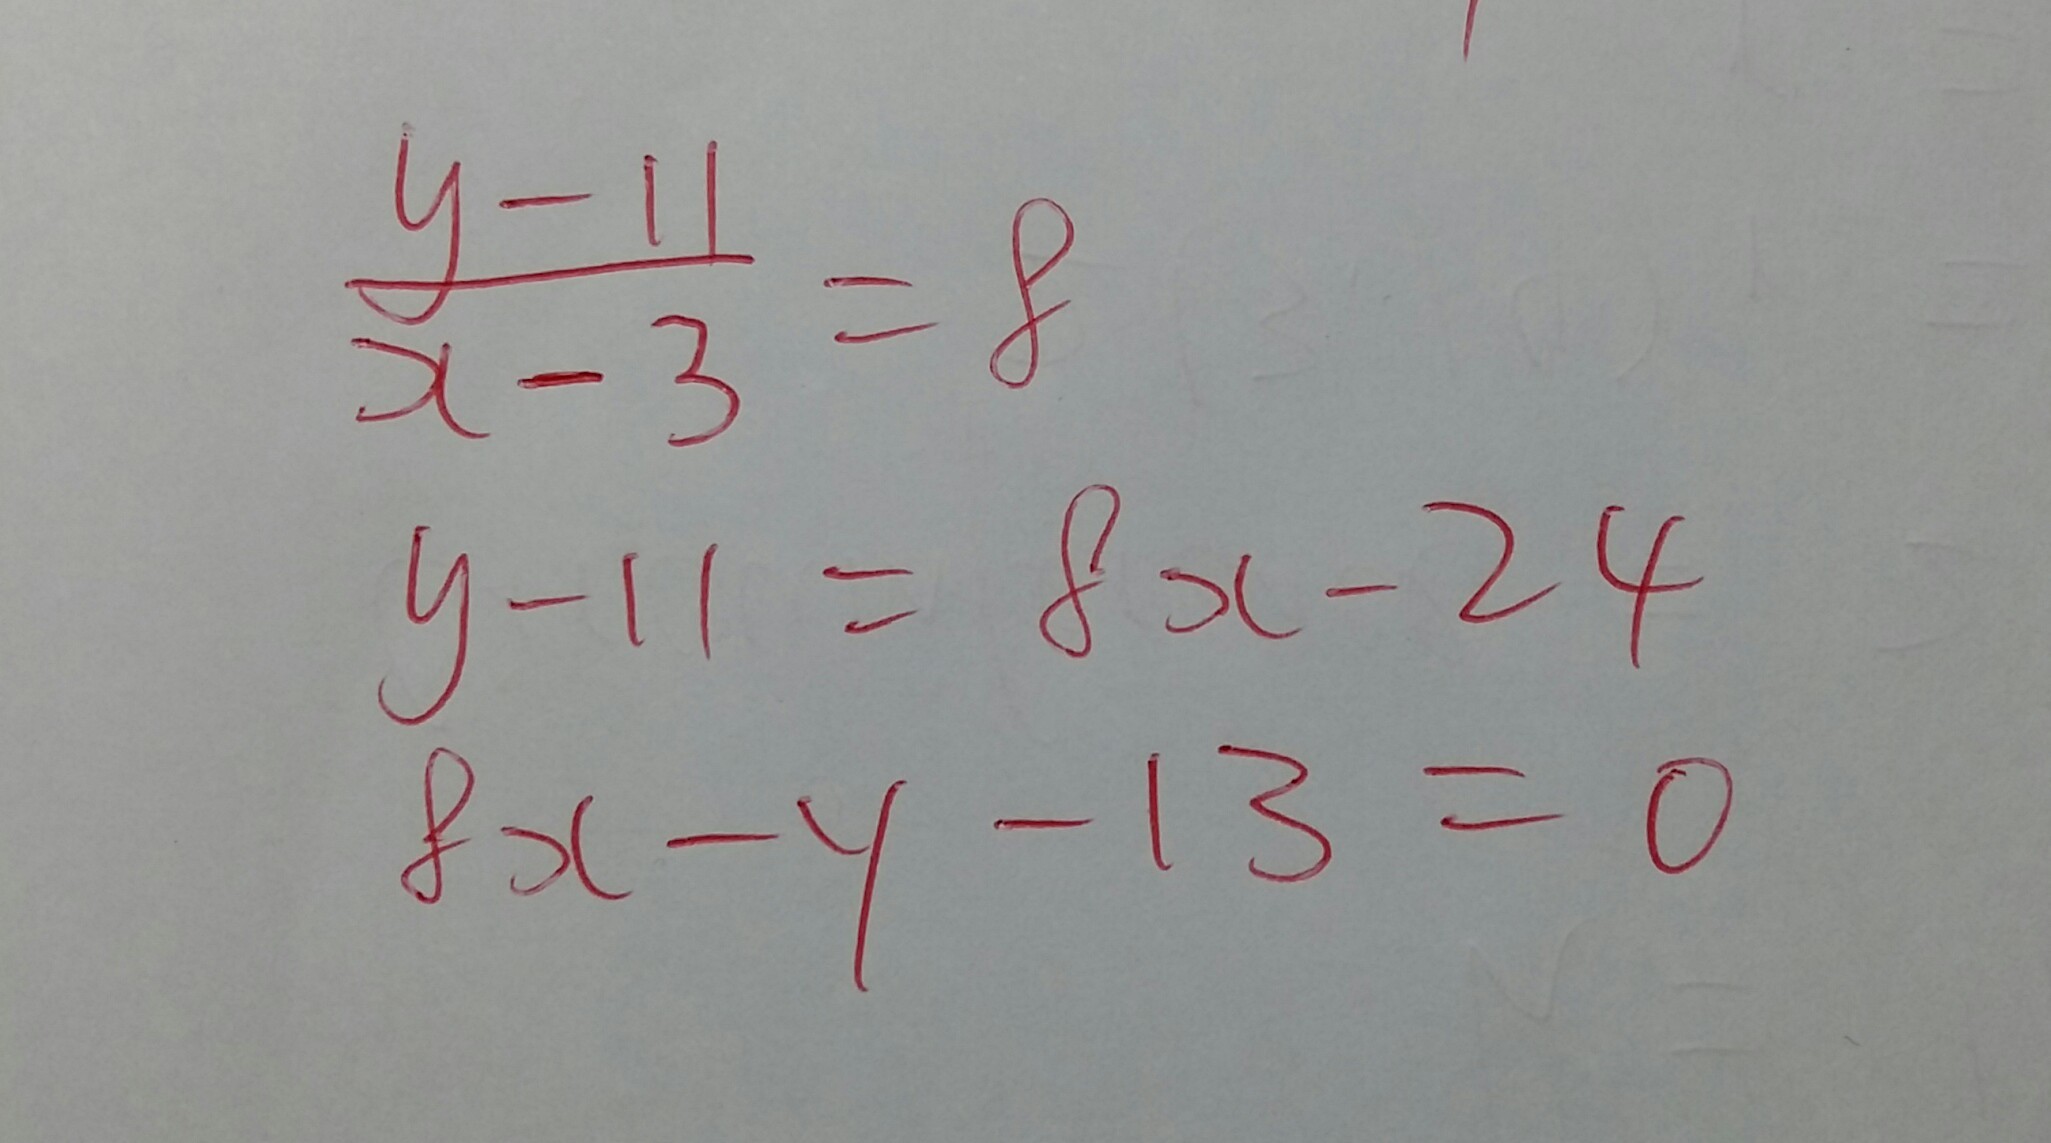 y-11/x-3 = 8
y-11 = 8x-24
8x-y-13=0